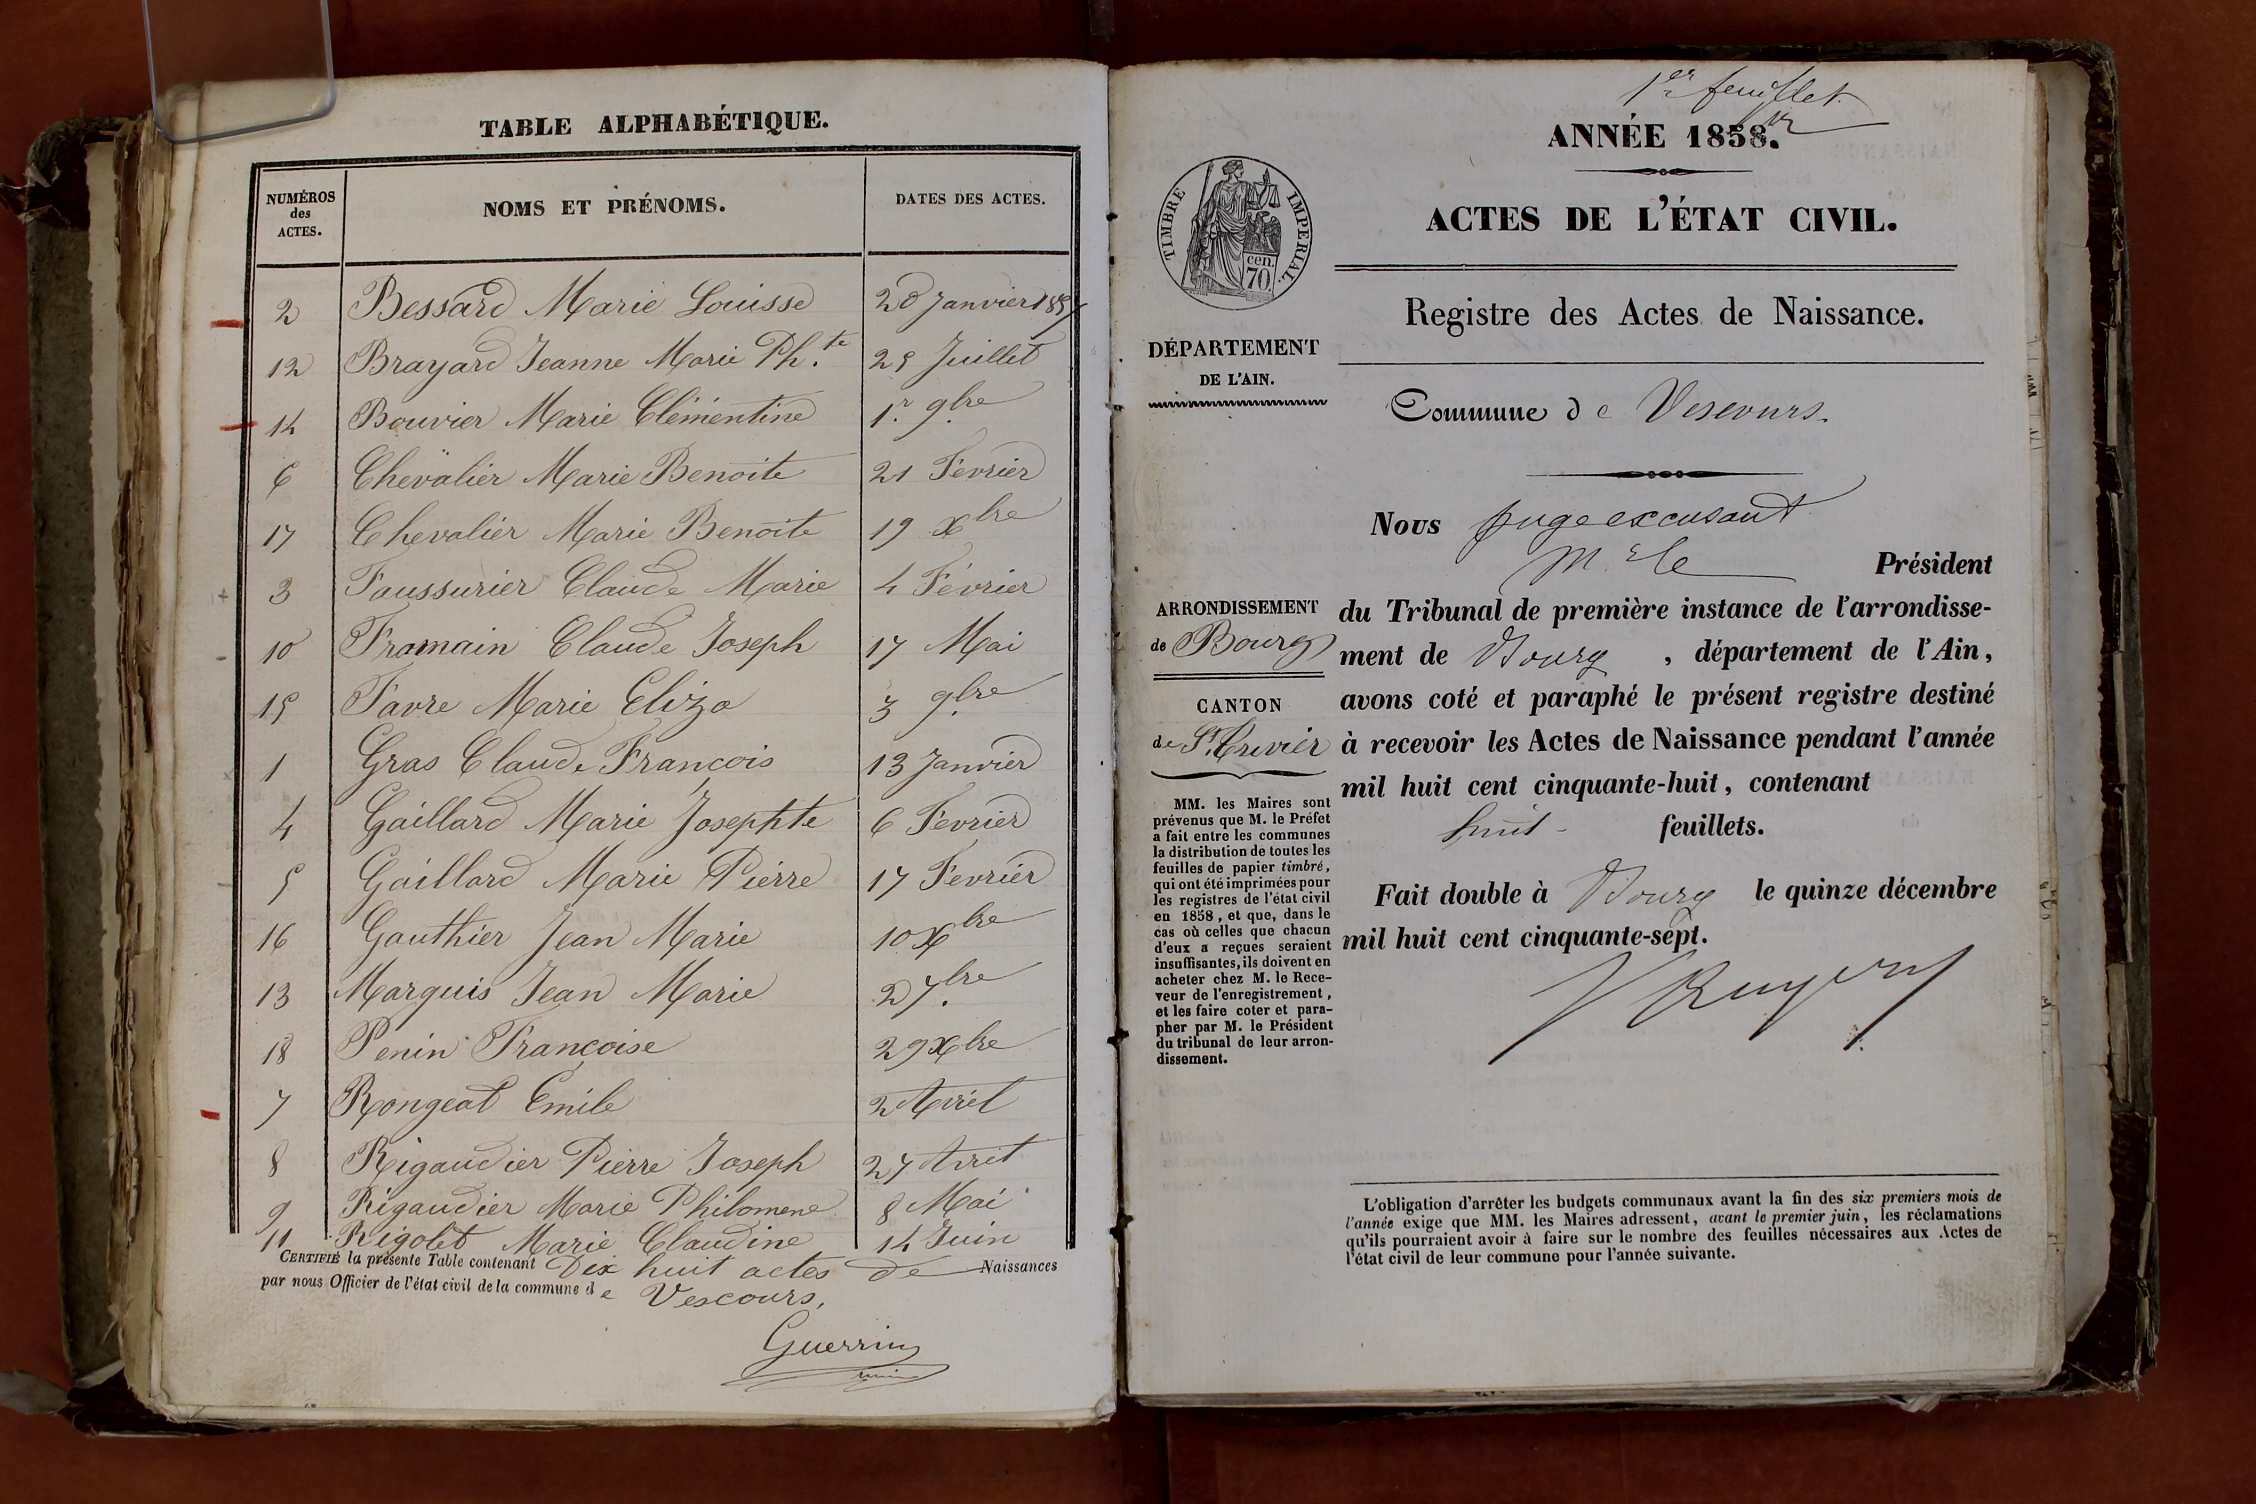 TABLE ALPHABÉTIQUE.
NUMÉROS
des
ACTES.
NOMS ET PRÉNOMS.
DATES DES ACTES.
2 Bessard Marie Louisse 28 Janvier 1857
12 Brayard Jeanne Marie Ph.te 25 Juillet
14 Bouvier Marie Clémentine 1.r 9bre
6 Chevalier Marie Benoite 21 Fevrier
17 Chevalier Marie Benoite 19 Xbre
3 Faussurier Claude Marie 4 Février
10 Framain Claude Joseph 17 Mai
15 Favre Marie Eliza 3 9bre
1 Gras Claude François 13 Janvier
4 Gaillard Marie Josephte 6 Fevrier
5 Gaillard Marie Pierre 17 Fevrier
16 Gauthier Jean Marie 10 Xbre
13 Marquis Jean Marie 2 7bre
18 Penin Françoise 29 Xbre
7 Rongeat Emile 2 Avril
8 Rigaudier Pierre Joseph 27 Avril
9 Rigaudier Marie Philomene 8 Mai
11 Rigolet Marie Claudine 14 Juin
CERTIFIÉ la présente Table contenant Dix huit actes de Naissances
par nous Officier de l'état civil de la commune de Vescours.
Guerrin
1er feuillet.
ANNÉE 1858.
TIMBRE IMPERIAL.
cen.
70
ACTES DE L'ÉTAT CIVIL.
Registre des Actes de Naissance.
DÉPARTEMENT
DE L'AIN.
Commune de Vescours.
Nous juge excusant
M. le Président
ARRONDISSEMENT
de Bourg
CANTON
de St. Trivier
MM. les Maires sont
prévenus que M. le Préfet
a fait entre les communes
la distribution de toutes les
feuilles de papier timbré,
qui ont été imprimées pour
les registres de l'état civil
en 1858, et que, dans le
cas où celles que chacun
d'eux a reçues seraient
insuffisantes, ils doivent en
acheter chez M. le Rece-
veur de l'enregistrement,
et les faire coter et para-
pher par M. le Président
du tribunal de leur arron-
dissement.
du Tribunal de première instance de l'arrondisse-
ment de Bourg, département de l'Ain,
avons coté et paraphé le présent registre destiné
à recevoir les Actes de Naissance pendant l'année
mil huit cent cinquante-huit, contenant
huit feuillets.
Fait double à Bourg le quinze décembre
mil huit cent cinquante-sept.
L'obligation d'arrêter les budgets communaux avant la fin des six premiers mois de
l'année exige que MM. les Maires adressent, avant le premier juin, les réclamations
qu'ils pourraient avoir à faire sur le nombre des feuilles nécessaires aux Actes de
l'état civil de leur commune pour l'année suivante.